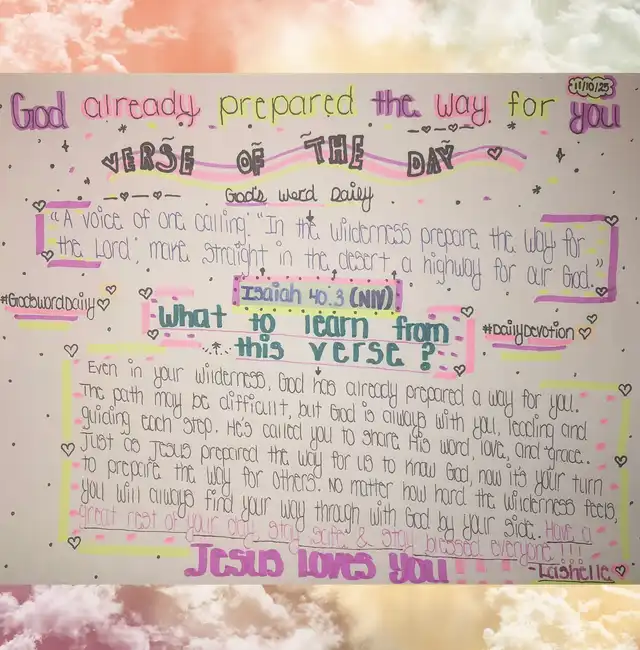 11/10/25
God already prepared the way for you
VERSE OF THE DAY
God's word Daily
"A voice of one calling: "In the wilderness prepare the way for
the Lord; make straight in the desert a highway for our God."
Isaiah 40:3 (NIV)
#GodswordDaily
What to learn from
this verse?
#DailyDevotion
Even in your wilderness, God has already prepared a way for you.
The path may be difficult, but God is always with you, leading and
guiding each step. He's called you to share His word, love, and grace.
Just as Jesus prepared the way for us to know God, now it's your turn
to prepare the way for others. No matter how hard the wilderness feels,
you will always find your way through with God by your side. Have a
great rest of your day, stay safe, & stay blessed everyone!!!
Jesus Loves You
-Lashelle